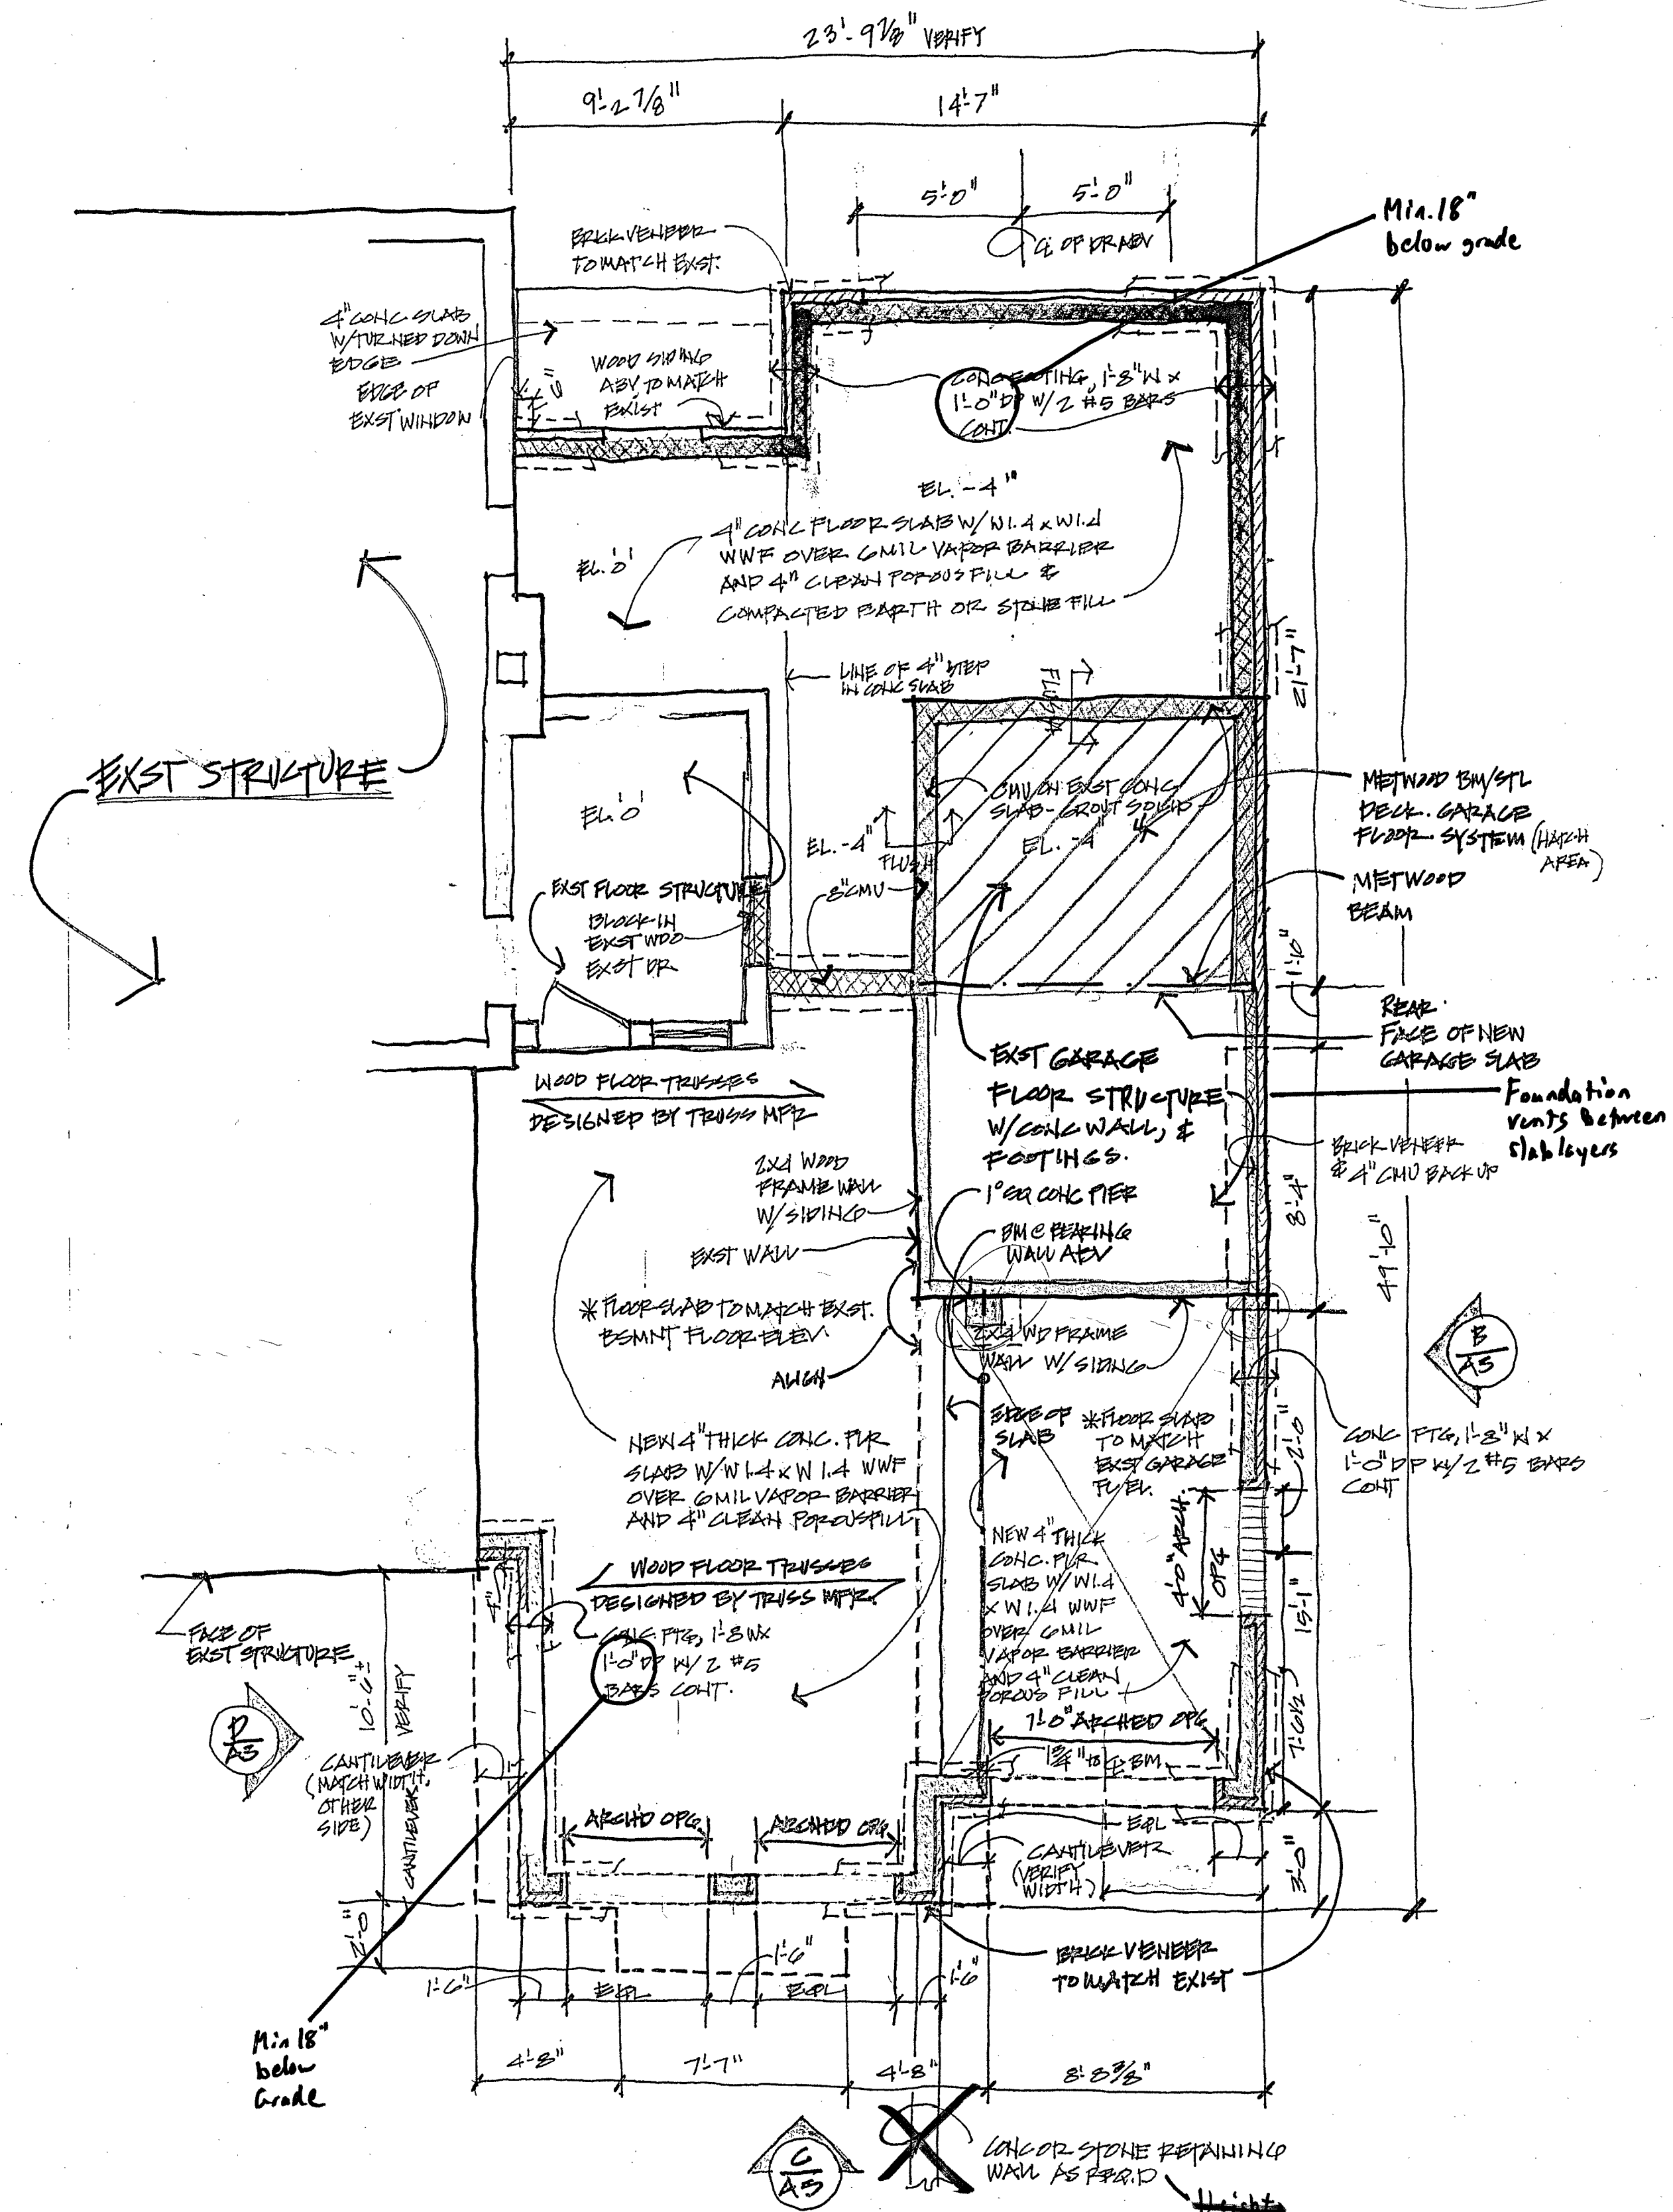 23'-9 7/8" VERIFY
9'-2 7/8"
14'-7"
5'-0"
5'-0"
℄ OF DR ABV
Min. 18"
below grade
BRICK VENEER
TO MATCH EXST.
4" CONC SLAB
W/TURNED DOWN
EDGE
EDGE OF
EXST WINDOW
WOOD SIDING
ABV TO MATCH
EXIST
CONC FOOTING, 1'-8" W x
1'-0" DP W/ 2 #5 BARS
CONT.
EL. -4"
4" CONC FLOOR SLAB W/ W1.4 x W1.4
WWF OVER 6 MIL VAPOR BARRIER
AND 4" CLEAN POROUS FILL &
COMPACTED EARTH OR STONE FILL
EL. 0'
LINE OF 4" STEP
IN CONC SLAB
FLUSH
21'-7"
EXST STRUCTURE
EL. 0'
CMU ON EXST CONC
SLAB - GROUT SOLID
EL. -4"
FLUSH
EL. -4"
METWOOD BM/STL
DECK. GARAGE
FLOOR SYSTEM (HATCH
AREA)
METWOOD
BEAM
EXST FLOOR STRUCTURE
8" CMU
BLOCK-IN
EXST WDO
EXST DR
1'-10"
REAR
FACE OF NEW
GARAGE SLAB
Foundation
vents between
slab layers
EXST GARAGE
FLOOR STRUCTURE
W/CONC WALL, &
FOOTINGS.
WOOD FLOOR TRUSSES
DESIGNED BY TRUSS MFR
BRICK VENEER
& 4" CMU BACK UP
2X4 WOOD
FRAME WALL
W/SIDING
1' SQ CONC PIER
8'-4"
49'-10"
EXST WALL
BM @ BEARING
WALL ABV
* FLOOR SLAB TO MATCH EXST.
BSMNT FLOOR ELEV.
2X4 WD FRAME
WALL W/ SIDING
B
A3
ALIGN
EDGE OF
SLAB
* FLOOR SLAB
TO MATCH
EXST GARAGE
FL EL.
2'-0"
CONC FTG, 1'-8" W x
1'-0" DP W/ 2 #5 BARS
CONT
NEW 4" THICK CONC. FLR
SLAB W/ W1.4 x W1.4 WWF
OVER 6 MIL VAPOR BARRIER
AND 4" CLEAN POROUS FILL
NEW 4" THICK
CONC. FLR
SLAB W/ W1.4
x W1.4 WWF
OVER 6 MIL
VAPOR BARRIER
AND 4" CLEAN
POROUS FILL
4'-0" ARCH'
OPG
15'-1"
WOOD FLOOR TRUSSES
DESIGNED BY TRUSS MFR.
4"
CONC. FTG, 1'-8 WX
1'-0" DP W/ 2 #5
BARS CONT.
FACE OF
EXST STRUCTURE
10'-6"±
VERIFY
7'-0" ARCHED OPG
7'-6 1/2"
D
A3
CANTILEVER
(MATCH WIDTH,
OTHER
SIDE)
CANTILEVER
ARCH'D OPG
ARCHED OPG
EQL
CANTILEVER
(VERIFY
WIDTH)
3'-0"
2'-0"
BRICK VENEER
TO MATCH EXIST
1'-6"
EQL
1'-6"
EQL
1'-6"
Min 18"
below
Grade
4'-8"
7'-7"
4'-8"
8'-8 3/8"
C
A3
CONC OR STONE RETAINING
WALL AS REQ.D